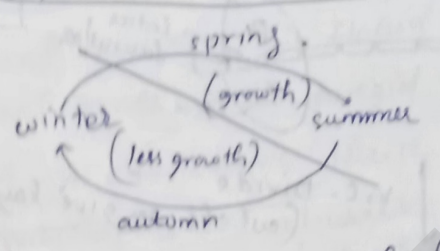 spring.
(growth)
winter
summer
(less growth)
automn